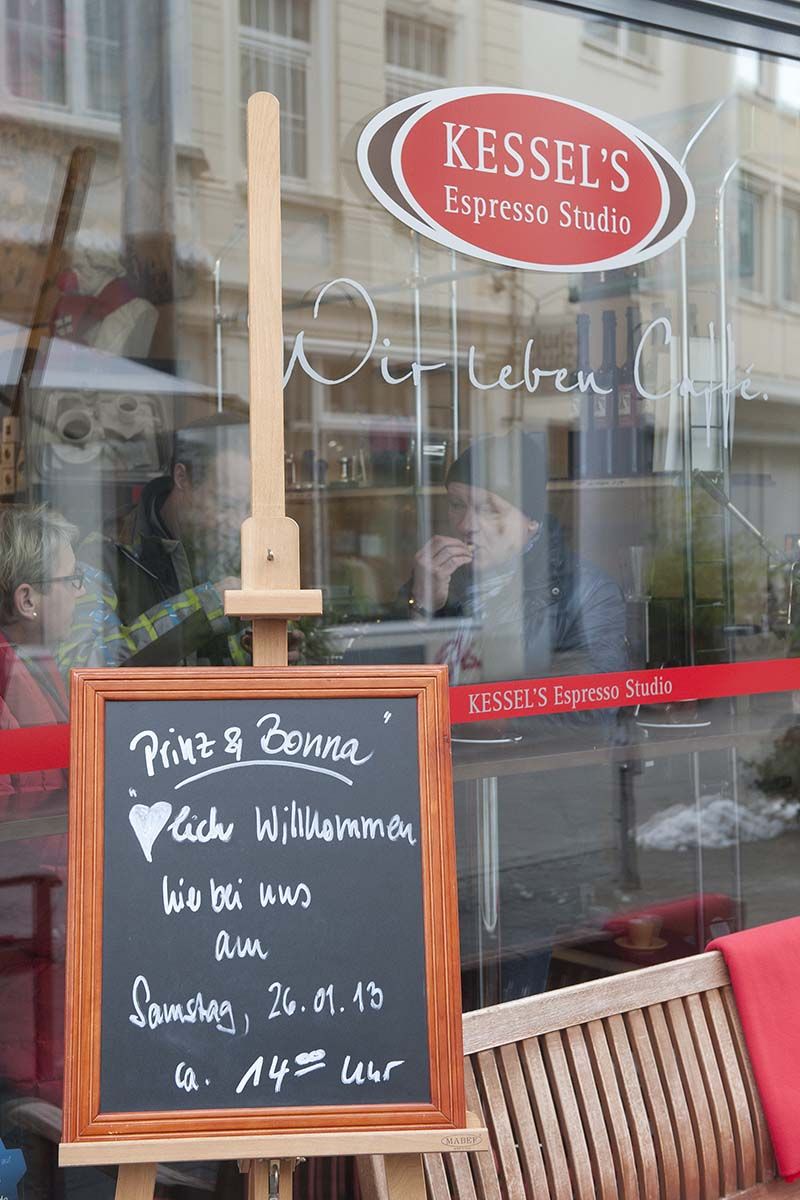 KESSEL'S
Espresso Studio
Wir leben Caffé.
KESSEL'S Espresso Studio
Prinz & Bonna"
"♥lich Willkommen
hie bei uns
am
Samstag, 26.01.13
ca. 14⁰⁰ Uhr
MABEF